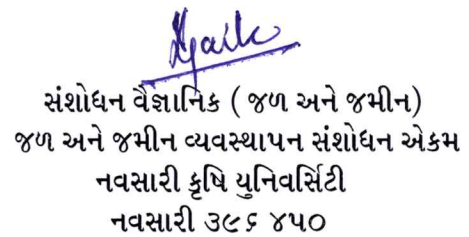 સંશોધન વૈજ્ઞાનિક ( જળ અને જમીન)
જળ અને જમીન વ્યવસ્થાપન સંશોધન એકમ
નવસારી કૃષિ યુનિવર્સિટી
નવસારી ૩૯૬ ૪૫૦